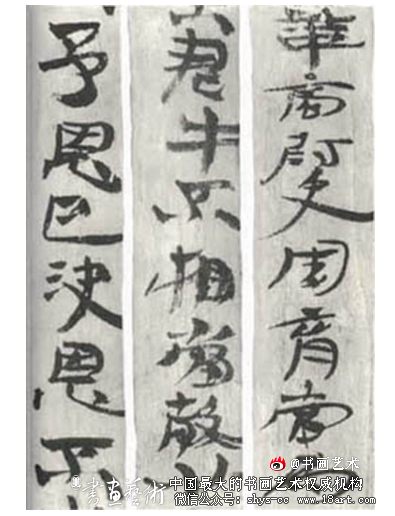 華商尉史周育當
君牛不相當穀
予恩已決恩不
@书画艺术
書畫藝術
中国最大的书画艺术权威机构
微信公众号: shys-cc www.18art.com